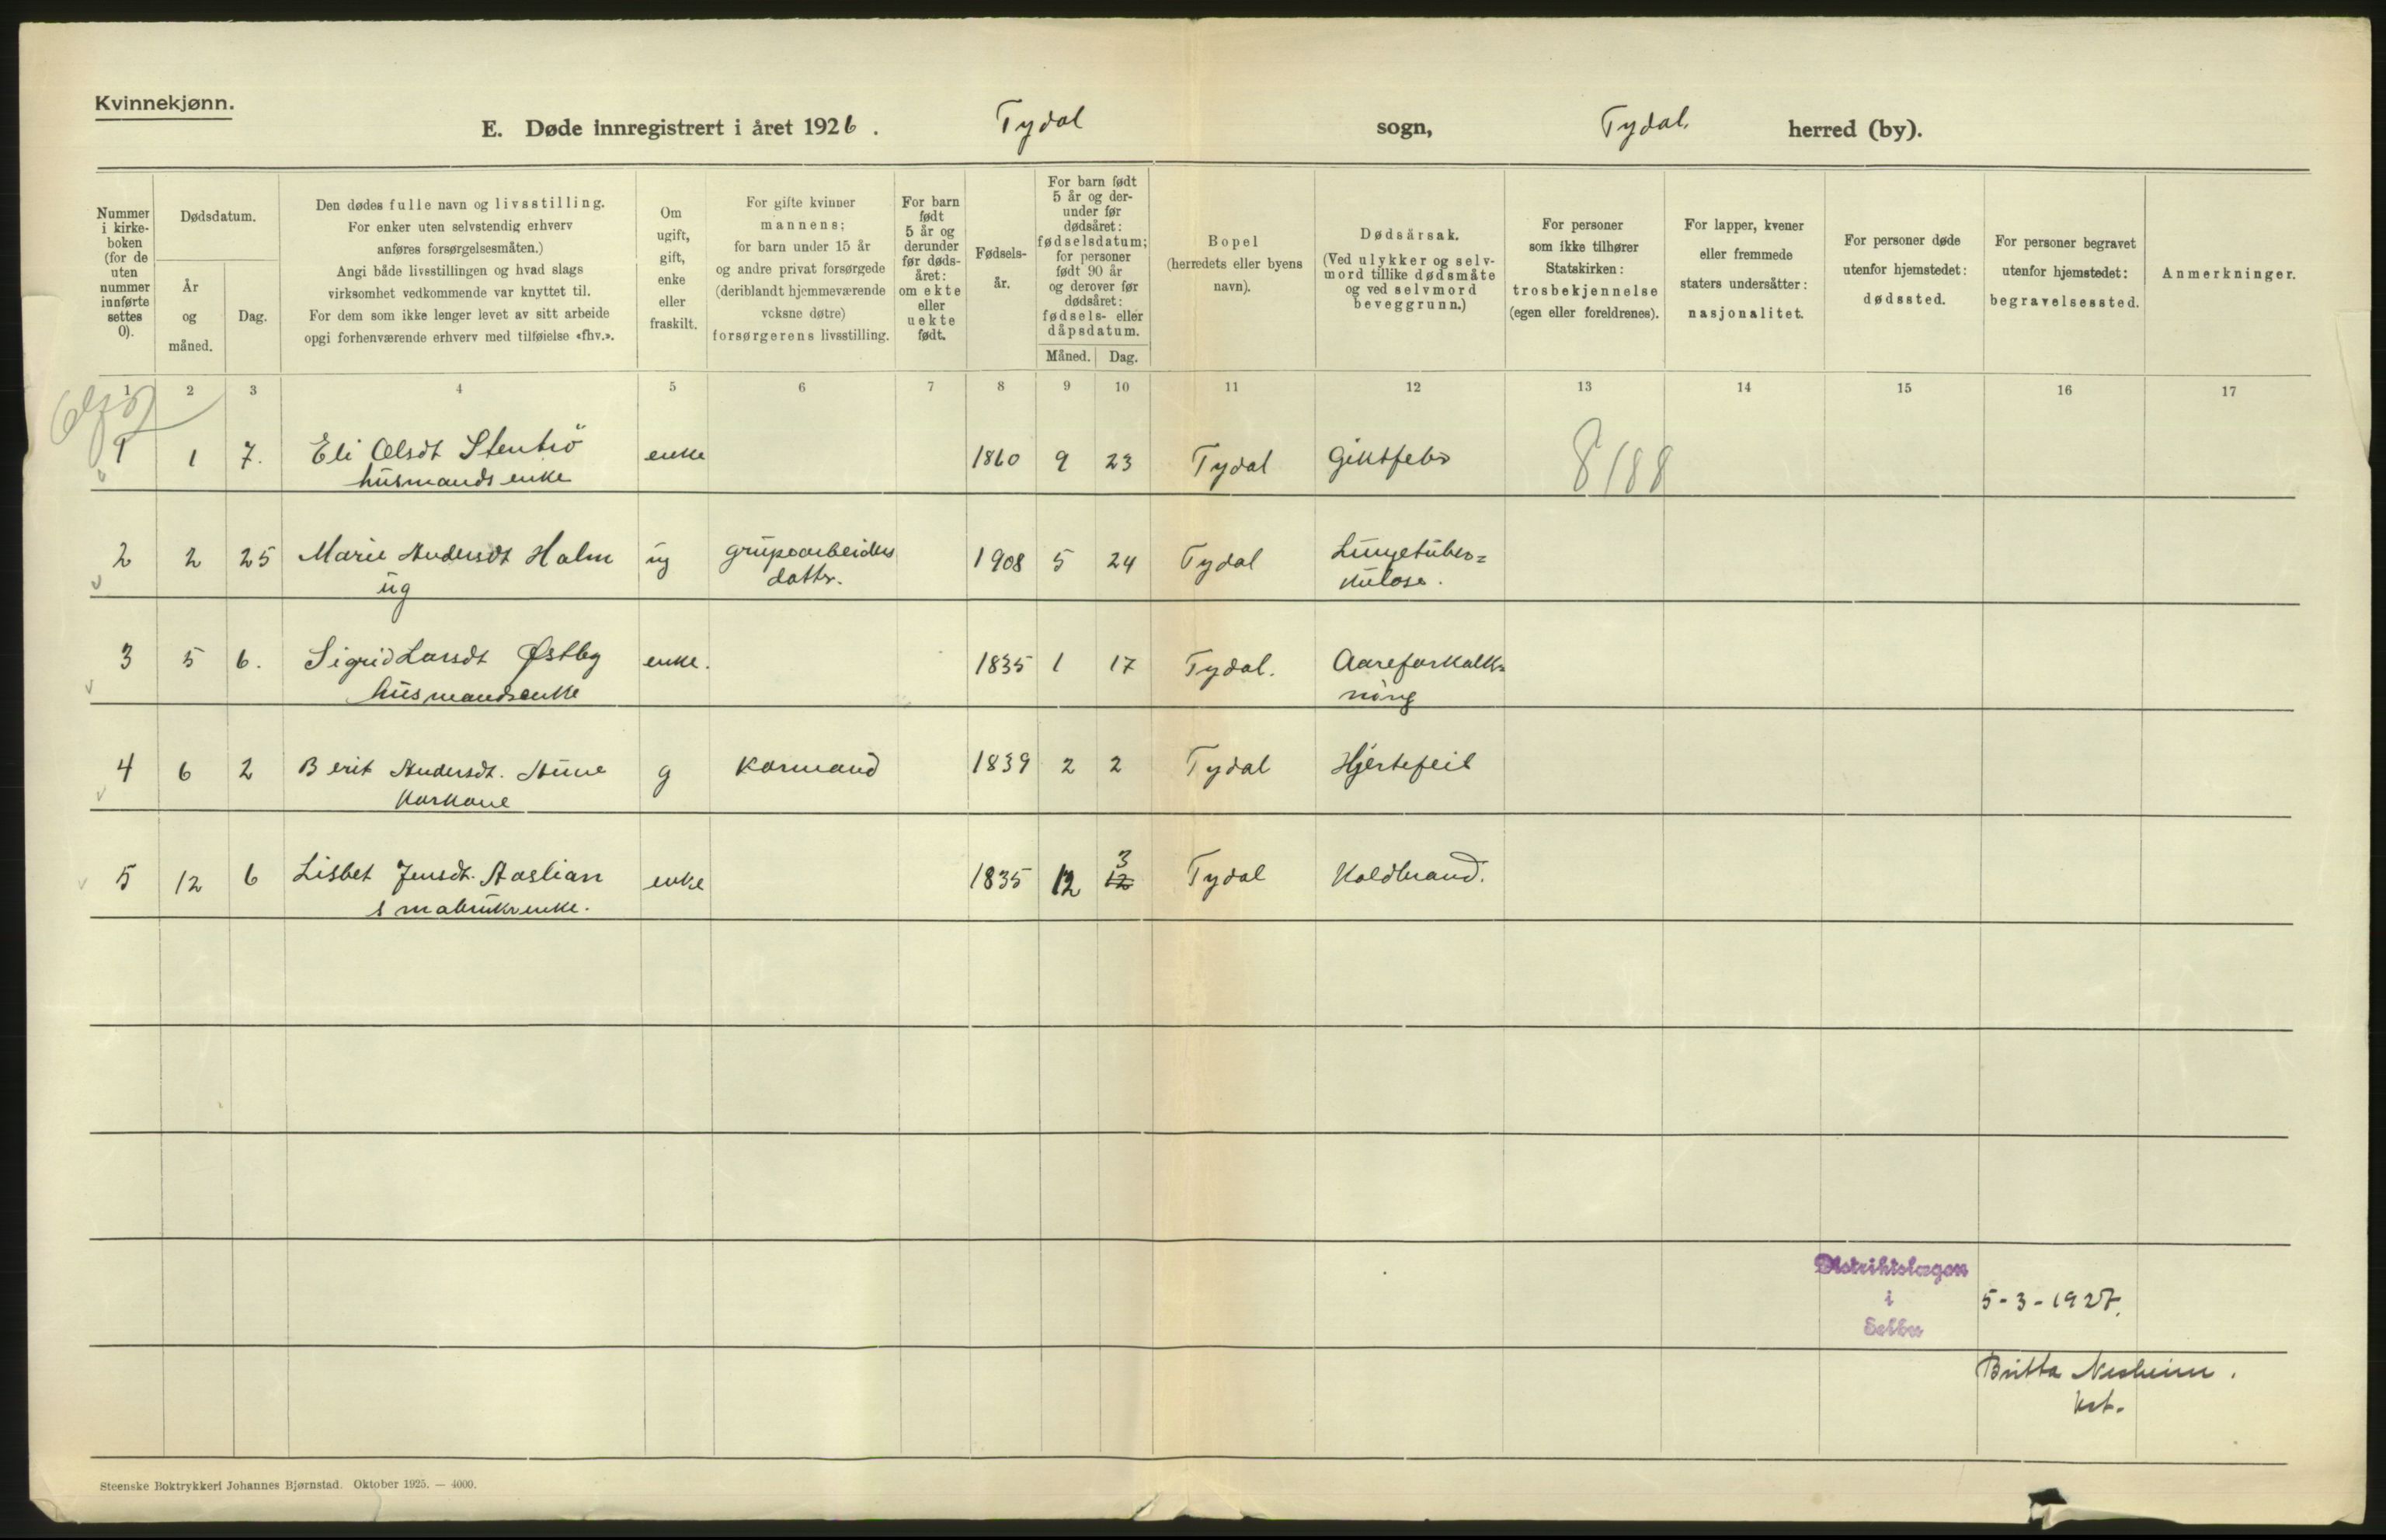 Kvinnekjønn.
E. Døde innregistrert i året 1926. Tydal sogn, Tydal. herred (by).
Nummer
i kirke-
boken
(for de
uten
nummer
innførte
settes
0).
Dødsdatum.
År
og
måned.
Dag.
Den dødes fulle navn og livsstilling.
For enker uten selvstendig erhverv
anføres forsørgelsesmåten.)
Angi både livsstillingen og hvad slags
virksomhet vedkommende var knyttet til.
For dem som ikke lenger levet av sitt arbeide
opgi forhenværende erhverv med tilføielse «fhv.».
Om
ugift,
gift,
enke
eller
fraskilt.
For gifte kvinner
mannens;
for barn under 15 år
og andre privat forsørgede
(deriblandt hjemmeværende
voksne døtre)
forsørgerens livsstilling.
For barn
født
5 år og
derunder
før døds-
året:
om ekte
eller
uekte
født.
Fødsels-
år.
For barn født
5 år og der-
under før
dødsåret:
fødselsdatum;
for personer
født 90 år
og derover før
dødsåret:
fødsels- eller
dåpsdatum.
Måned. Dag.
Bopel
(herredets eller byens
navn).
Dødsårsak.
(Ved ulykker og selv-
mord tillike dødsmåte
og ved selvmord
beveggrunn.)
For personer
som ikke tilhører
Statskirken:
trosbekjennelse
(egen eller foreldrenes).
For lapper, kvener
eller fremmede
staters undersåtter:
nasjonalitet.
For personer døde
utenfor hjemstedet:
dødssted.
For personer begravet
utenfor hjemstedet:
begravelsessted.
Anmerkninger.
1 2 3 4 5 6 7 8 9 10 11 12 13 14 15 16 17
1 1 7. Eli Olsdt enke 1860 9 23 Tydal Giktfeber 8188
husmands enke
2 2 25 Marie Andersdt Holm ug grubearbeiders 1908 5 24 Tydal Lungetuber=
ug datter. kulose.
3 5 6. Sigrid Larsdt Østby enke. 1835 1 17 Tydal. Aareforkalk=
husmandsenke ning
4 6 2 Berit Andersdt. Aune g Kaarmand 1839 2 2 Tydal Hjertefeil
Kaarkone
3
5 12 6 Lisbet Jensdt. Aaslian enke 1835 12 12 Tydal Koldbrand.
småbrukrenke.
Distriktslægen
i
Selbu
5-3-1927.
Britta Nesheim.
kst.
Steenske Boktrykkeri Johannes Bjørnstad. Oktober 1925. — 4000.